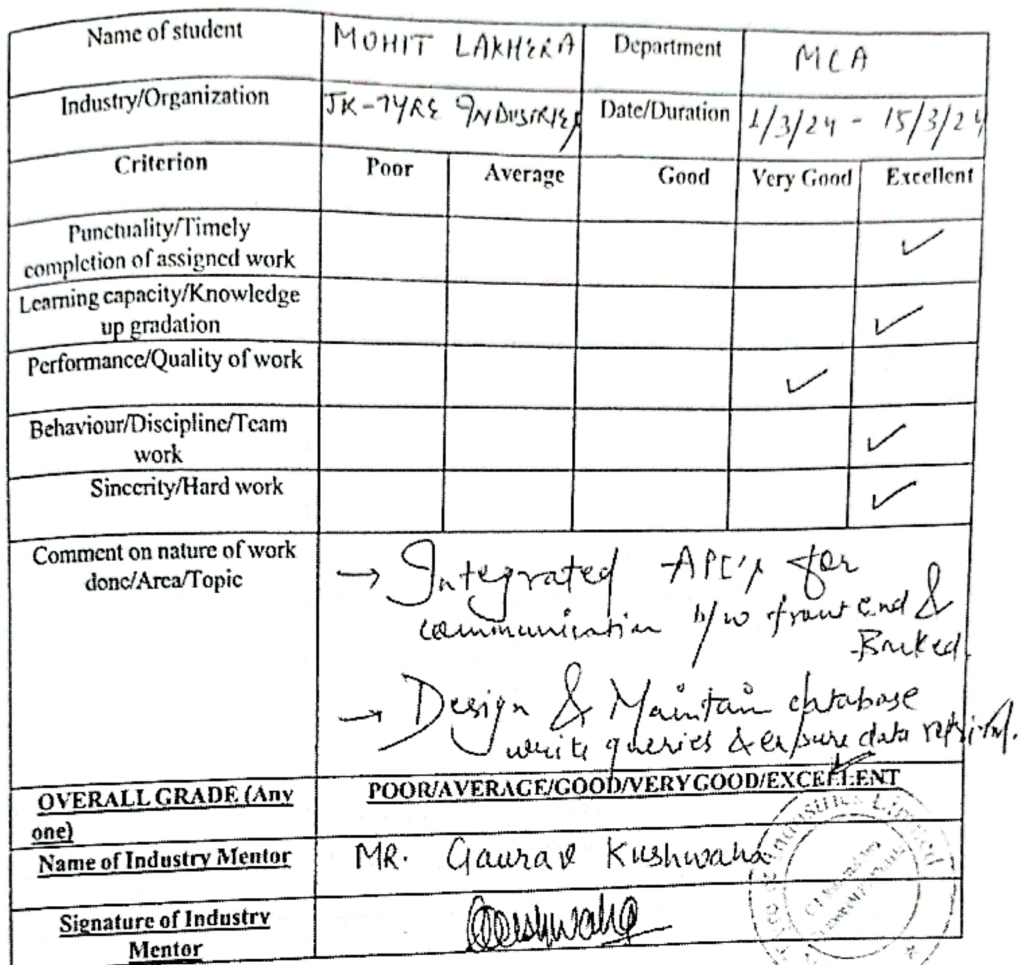 Name of student MOHIT LAKHERA Department MCA
Industry/Organization JK-TYRE INDUSTRIES Date/Duration 1/3/24 - 15/3/24
Criterion Poor Average Good Very Good Excellent
Punctuality/Timely
completion of assigned work ✓
Learning capacity/Knowledge
up gradation ✓
Performance/Quality of work ✓
Behaviour/Discipline/Team
work ✓
Sincerity/Hard work ✓
Comment on nature of work
done/Area/Topic
→ Integrated API's for
communication b/w front end &
Backed.
→ Design & Maintain database
write queries & ensure data retrieval.
OVERALL GRADE (Any
one) POOR/AVERAGE/GOOD/VERY GOOD/EXCELLENT
Name of Industry Mentor MR. Gaurav Kushwaha
Signature of Industry
Mentor Kushwaha
Limited